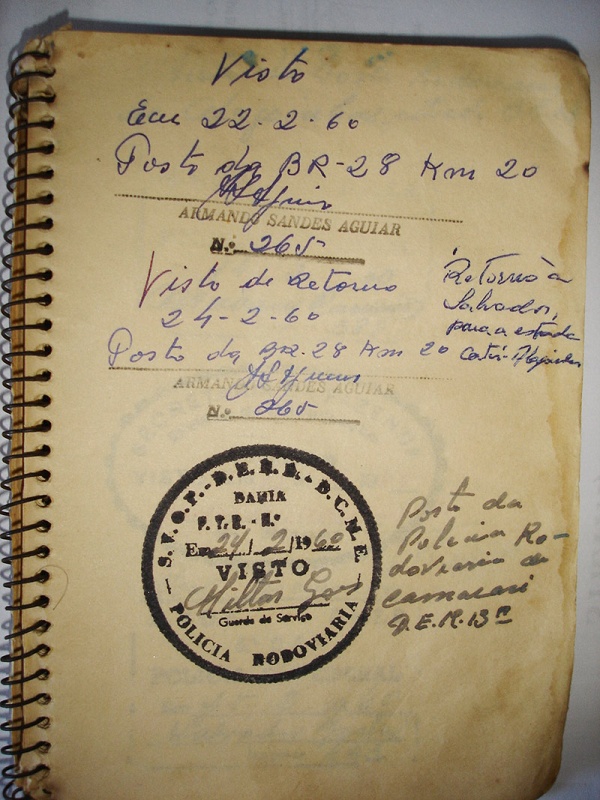 Visto
Em 22-2-60
Posto da BR-28 Km 20
ARMANDO SANDES AGUIAR
N.º 265
Visto de Retorno
24-2-60
Posto da BR-28 Km 20
ARMANDO SANDES AGUIAR
N.º 265
Retorno à
Salvador,
para a estrada
S.V.O.P.-D.E.R.B.-D.C.M.E.
BAHIA
Em 24/2/1960
VISTO
Milton
Guarda de Serviço
POLICIA RODOVIARIA
Posto da
Policia Ro-
doviaria de
Camaçari